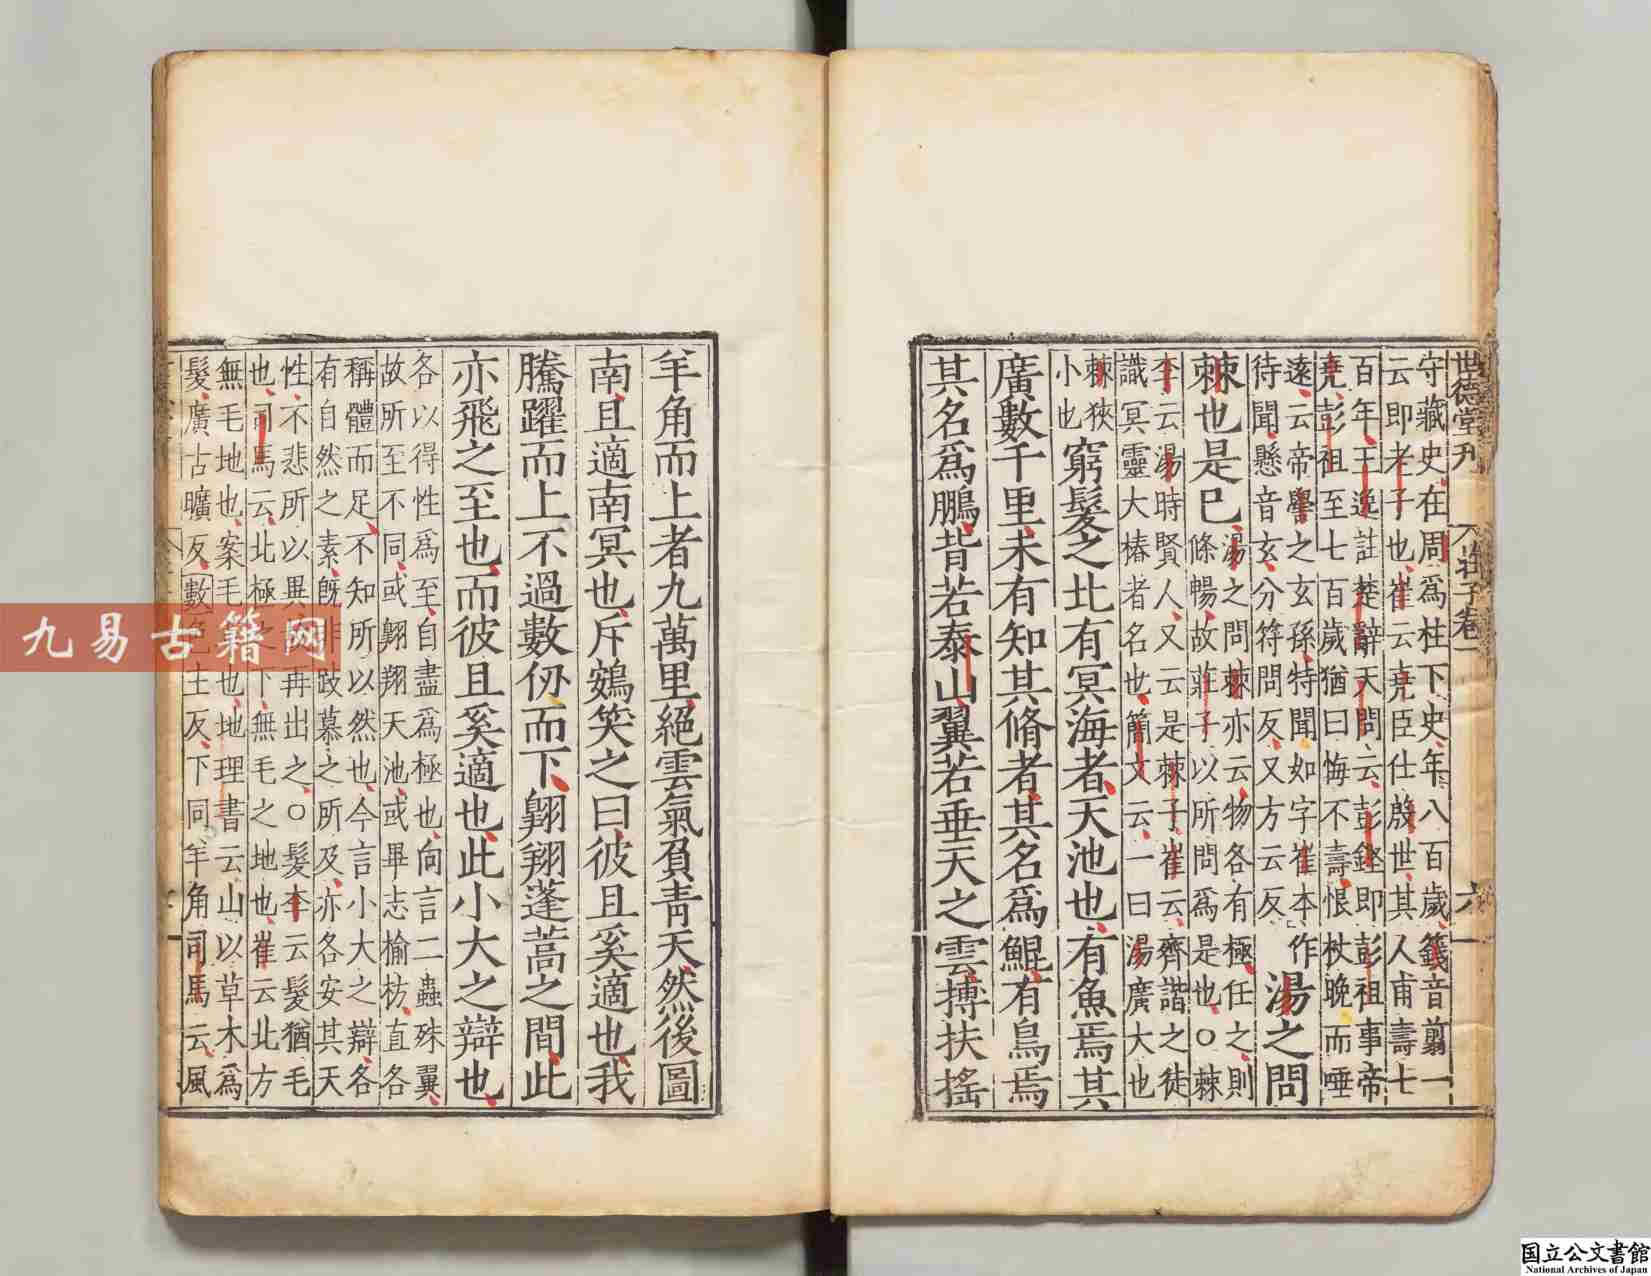 世德堂刊 莊子卷一 六
守藏史在周爲柱下史年八百歲籛音剪一
云即老子也崔云堯臣仕殷世其人甫壽七
百年王逸註楚辭天問云彭鏗即彭祖事帝
堯彭祖至七百歲猶曰悔不壽恨杖晚而唾
遠云帝嚳之玄孫特聞如字崔本作
待聞懸音玄分符問反又方云反
湯之問
棘也是已
湯之問棘亦云物各有極任之則
條暢故莊子以所問爲是也○棘
李云湯時賢人又云是棘子崔云齊諧之徒
識冥靈大椿者名也簡文云一曰湯廣大也
棘狹
小也
窮髮之北有冥海者天池也有魚焉其
廣數千里未有知其脩者其名爲鯤有鳥焉
其名爲鵬背若泰山翼若垂天之雲搏扶搖
羊角而上者九萬里絕雲氣負青天然後圖
南且適南冥也斥鴳笑之曰彼且奚適也我
騰躍而上不過數仞而下翱翔蓬蒿之間此
亦飛之至也而彼且奚適也此小大之辯也
各以得性爲至自盡爲極也向言二蟲殊翼
故所至不同或翱翔天池或畢志榆枋直各
稱體而足不知所以然也今言小大之辯各
有自然之素旣非跂慕之所及亦各安其天
性不悲所以異故再出之○髮李云髮猶毛
也司馬云北極之下無毛之地也崔云北方
無毛地也案毛草也地理書云山以草木爲
髮廣古曠反數色主反下同羊角司馬云風
九易古籍网
国立公文書館
National Archives of Japan